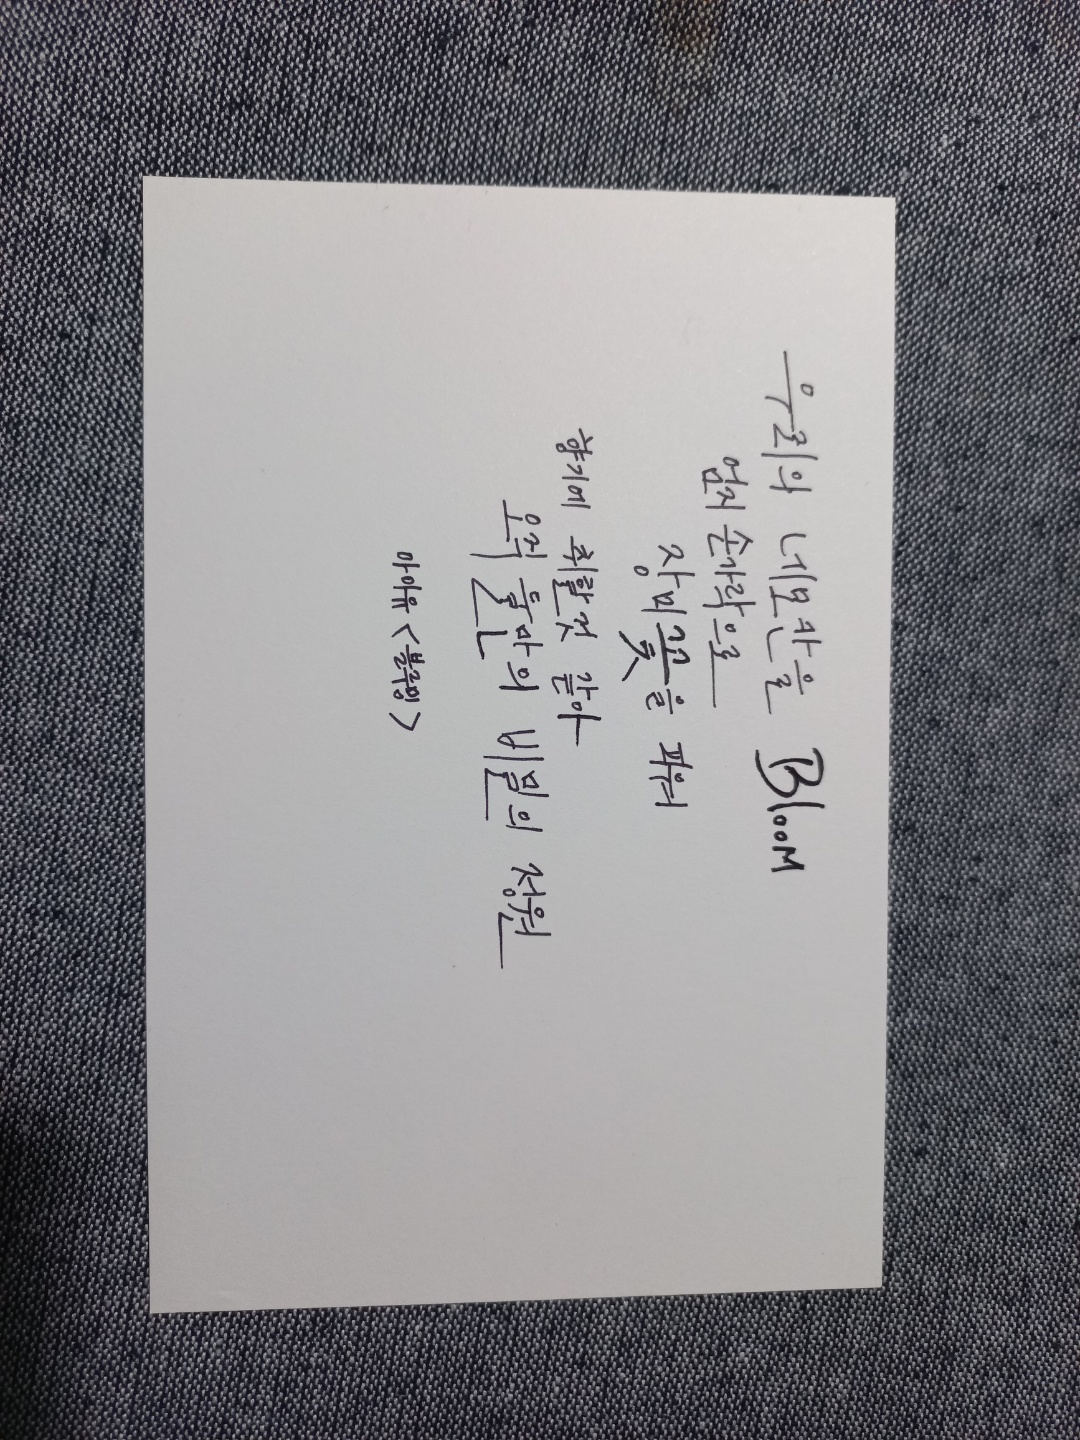 우리의 네모칸을 BlooM
엄지 손가락으로
장미꽃을 피워
향기에 취할 것 같아
오직 둘만의 비밀의 정원
아이유 <블루밍>